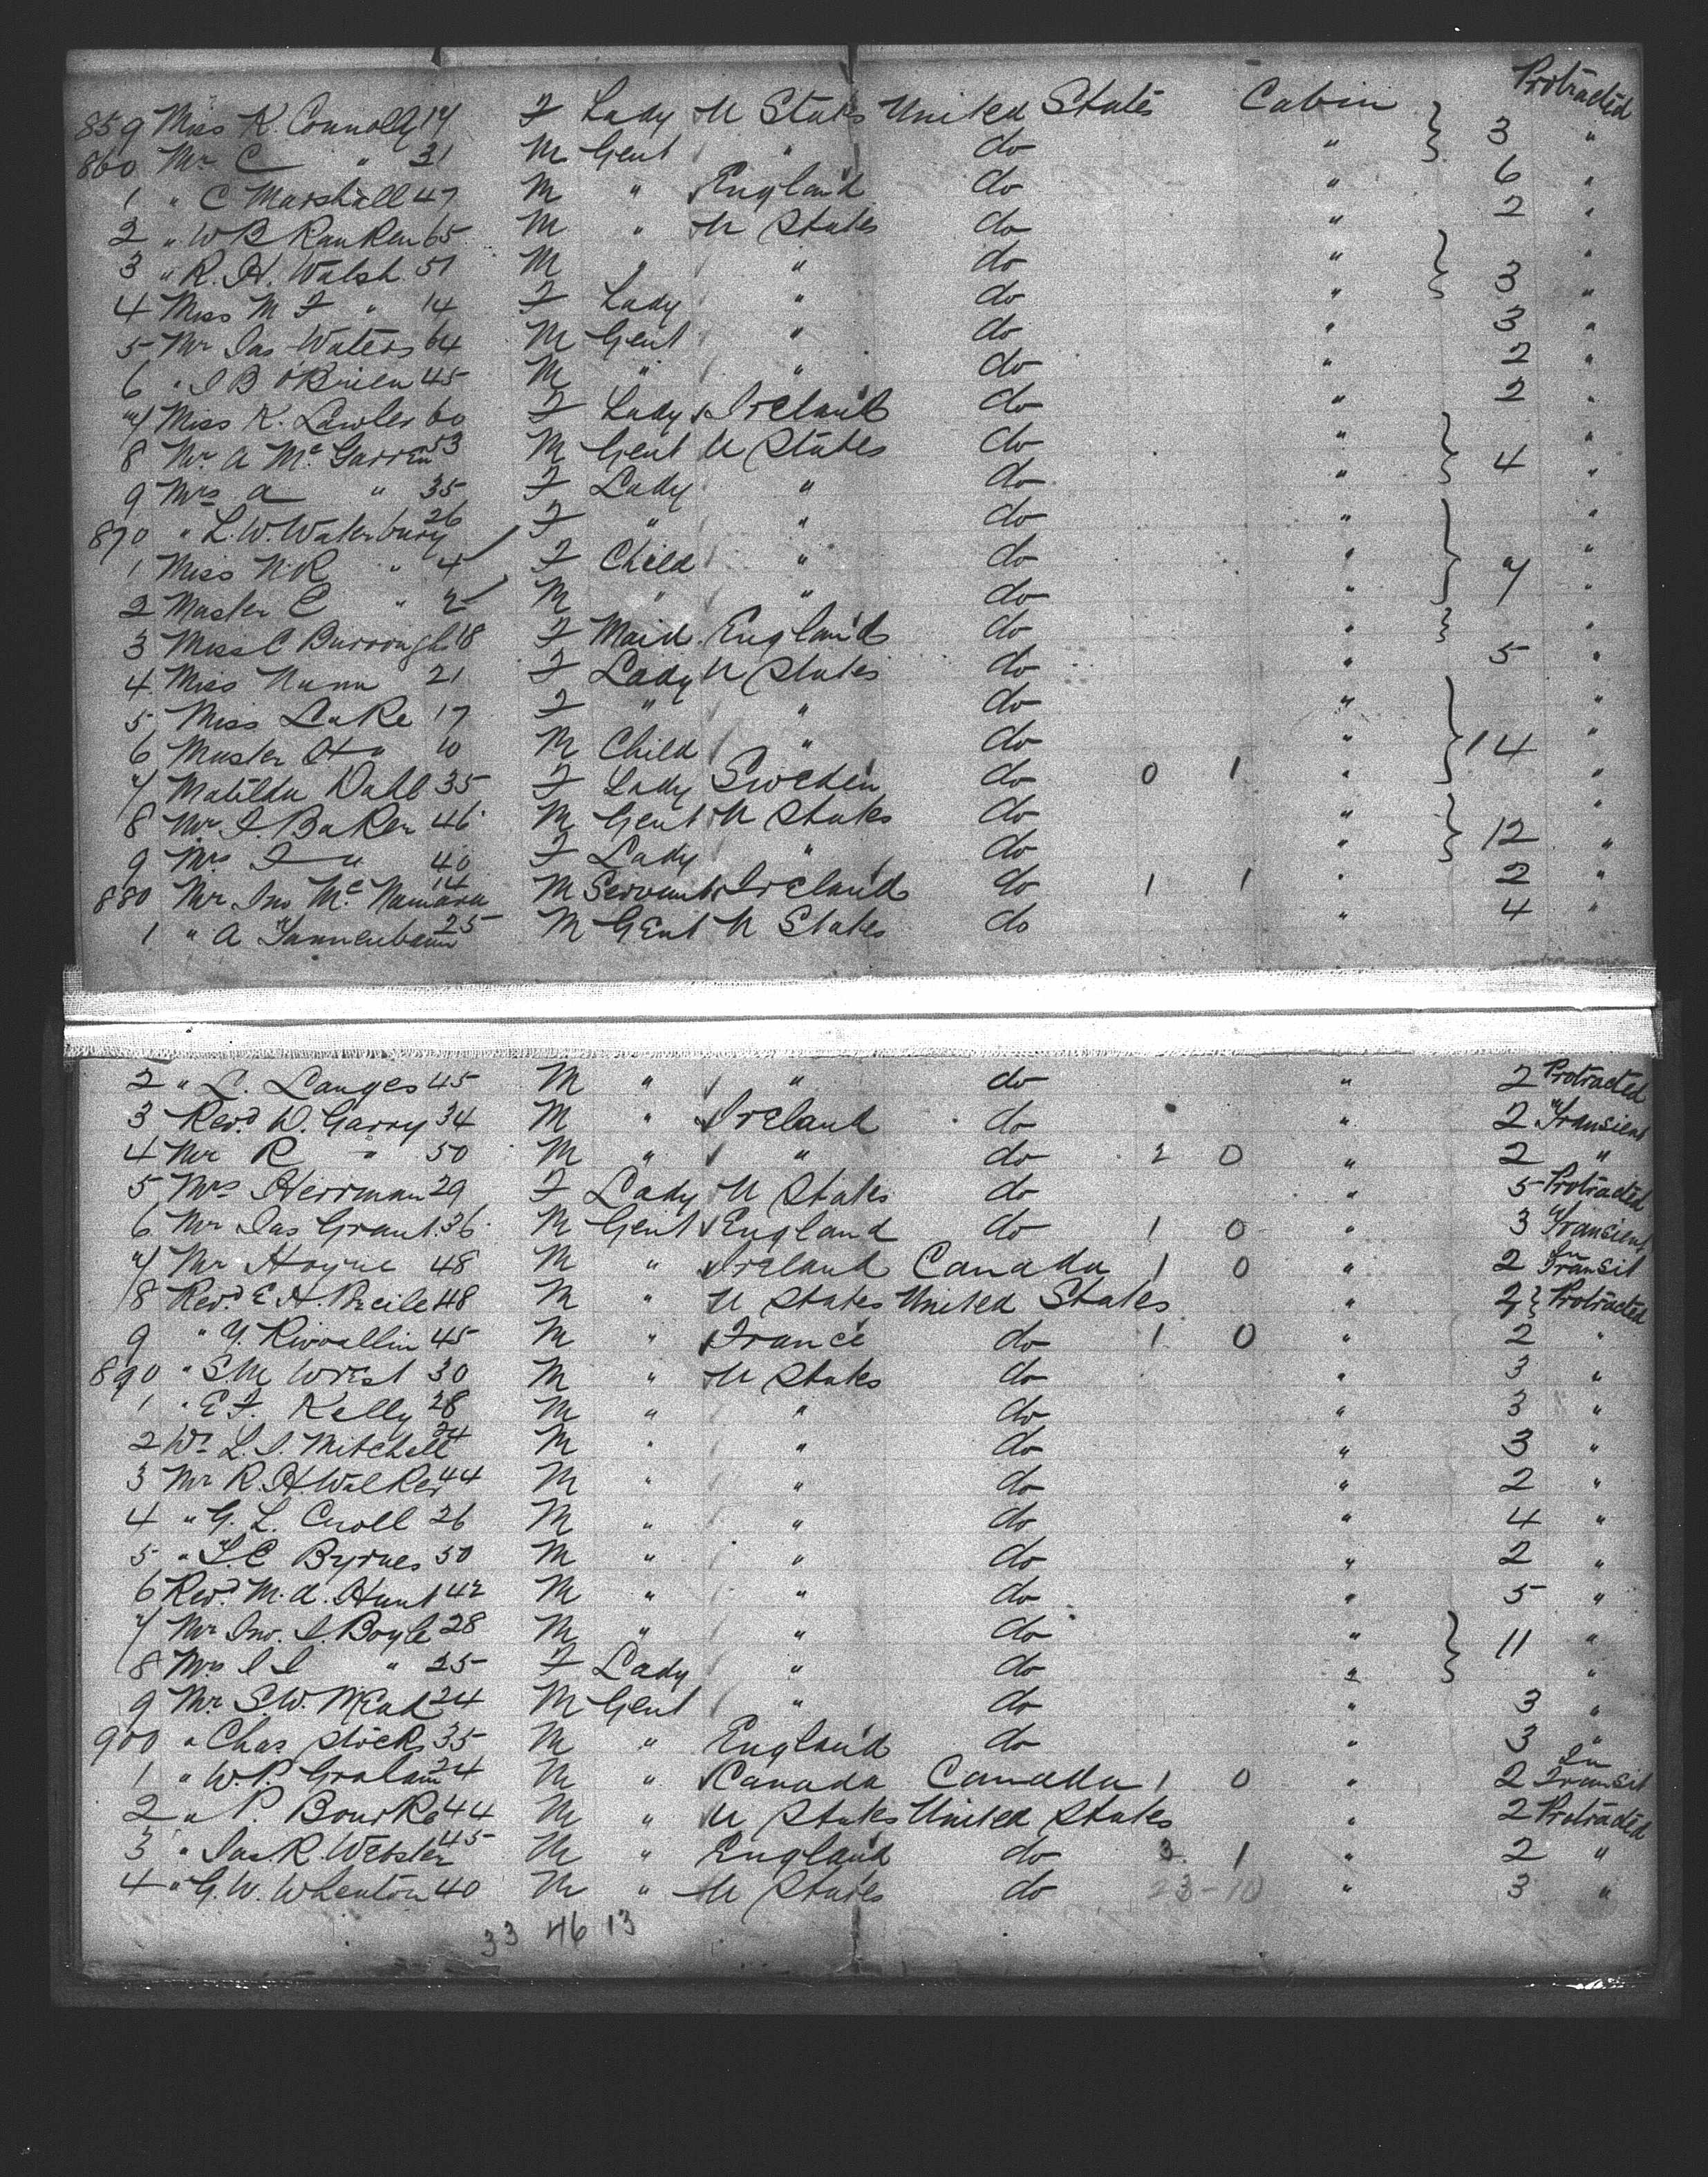 Protracted
859 Miss K. Connolly 14 F Lady U States United States Cabin } 3 "
860 Mr C " 31 M Gent " do "
1 " C Marshall 47 M " England do " 6 "
2 " W B Ranken 65 M " U States do " 2 "
3 " R. H. Walsh 51 M " " do " } 3 "
4 Miss M F " 14 F Lady " do " "
5 Mr Jas Waters 64 M Gent " do " 3 "
6 " J B O'Brien 45 M " " do " 2 "
7 Miss K. Lawler 60 F Lady Ireland do " 2 "
8 Mr A Mc Garren 53 M Gent U States do " } 4 "
9 Mrs A " 35 F Lady " do " "
870 " L. W. Waterbury 26 F " " do " } 7 "
1 Miss N R " 4 F Child " do " "
2 Master C " M " " do " "
3 Miss C Burrough 18 F Maid England do " } "
4 Miss Nunn 21 F Lady U States do " 5 "
5 Miss Lake 17 F " " do " } 14 "
6 Master H " 10 M Child " do " "
7 Matilda Dahl 35 F Lady Sweden do 0 1 " "
8 Mr J. Baker 46 M Gent U States do " } 12 "
9 Mrs J " 40 F Lady " do " "
880 Mr Jno Mc Namara 14 M Servant Ireland do 1 1 " 2 "
1 " A Tannenbaum 25 M Gent U States do " 4 "
2 " L. Langes 45 M " " do " 2 Protracted
3 Revd W. Garry 34 M " Ireland do " 2 Transient
4 Mr R " 50 M " " do 2 0 " 2 "
5 Mrs Herrman 29 F Lady U States do " 5 Protracted
6 Mr Jas Grant 36 M Gent England do 1 0 " 3 Transient
7 Mr Hoyne 48 M " Ireland Canada 1 0 " 2 In Transit
8 Revd E H. 48 M " U States United States " 2 } Protracted
9 " Y. Rivoallin 45 M " France do 1 0 " 2 "
890 " S. M West 30 M " U States do " 3 "
1 " E F. Kelly 28 M " " do " 3 "
2 L. J. Mitchell 24 M " " do " 3 "
3 Mr R. H Walker 44 M " " do " 2 "
4 " G. L. Croll 26 M " " do " 4 "
5 " T. C Byrnes 50 M " " do " 2 "
6 Revd M. A. Hunt 42 M " " do " 5 "
7 Mr Jno. J. Boyle 28 M " " do " } 11 "
8 Mrs J J " 25 F Lady " do " "
9 Mr S. W. Mead 24 M Gent " do " 3 "
900 " Chas Sticks 35 M " England do " 3 "
1 " W. P. Graham 24 M " Canada Canada 1 0 " 2 In Transit
2 " P. Bourke 44 M " U States United States " 2 Protracted
3 " Jas. R. Webster 45 M " England do 3 1 " 2 "
4 " G. W. Wheaton 40 M " U States do 23-10 " 3 "
33 46 13